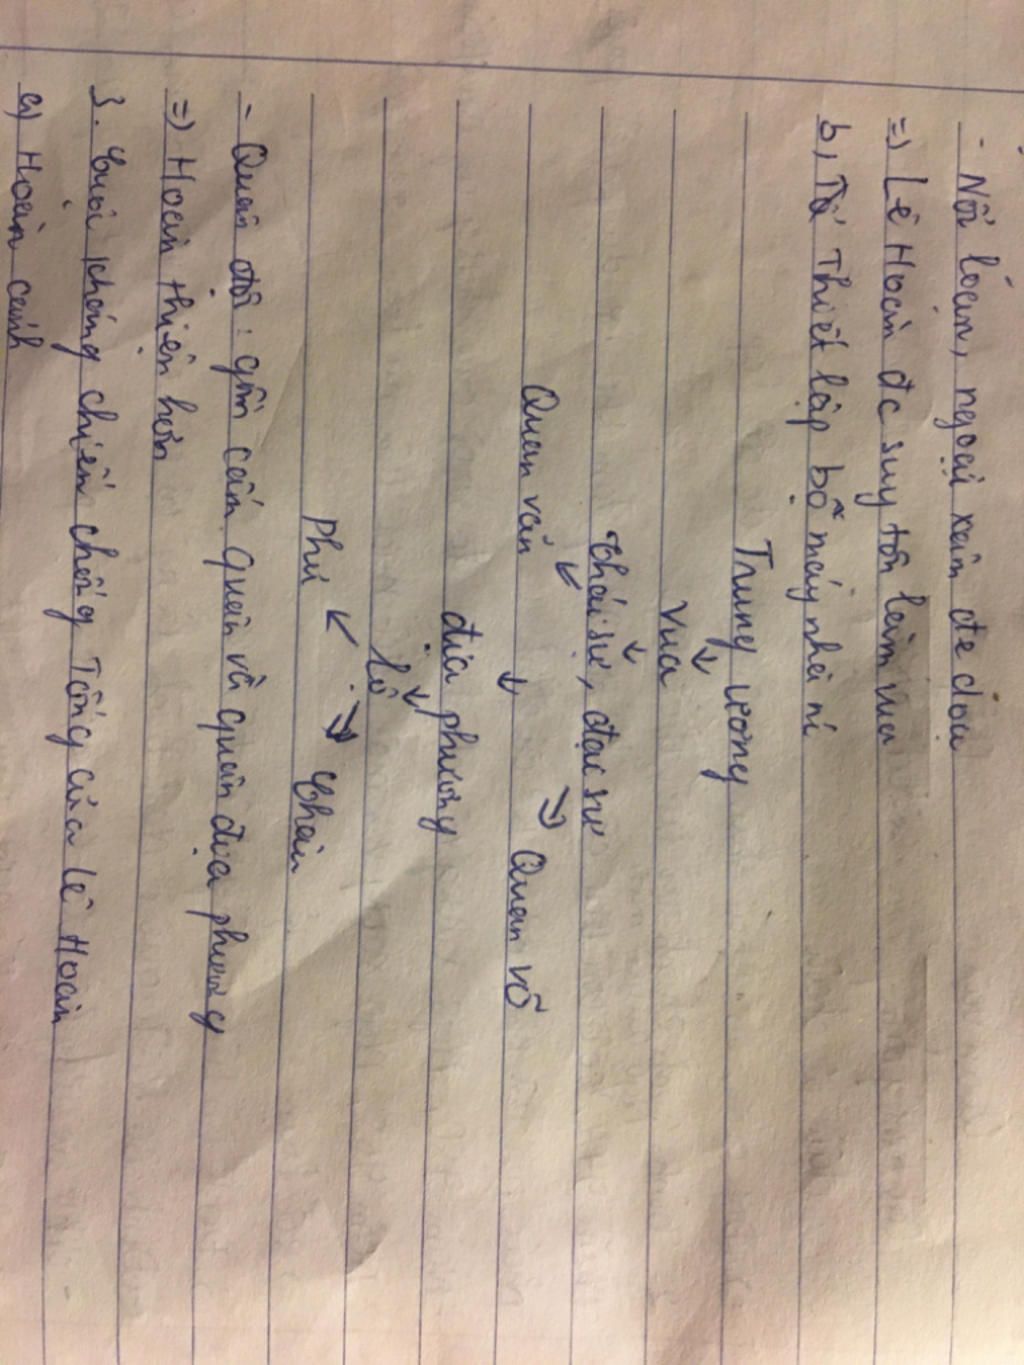 - Nổi loạn, ngoại xâm đe dọa
=) Lê Hoàn đc suy tôn làm vua
b, Tổ Thiết lập bộ máy nhà nc
Trung ương
↓
Vua
↓
Thái sư, đại sư
↙ ↓ ↘
Quan văn Quan võ
địa phương
↓
Lộ
↙ ↘
Phủ Châu
- Quân đội: gồm cấm quân và quân địa phương
=) Hoàn thiện hơn
3. Cuộc kháng chiến chống Tống của Lê Hoàn
a) Hoàn cảnh